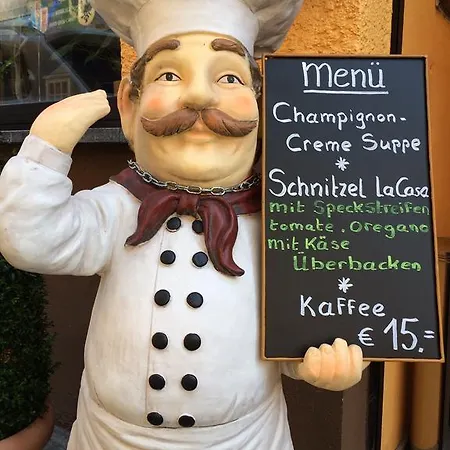 Menü
Champignon-
Creme Suppe
*
Schnitzel LaCasa
mit Speckstreifen
tomate. Oregano
mit Käse
Überbacken
*
Kaffee
€ 15.=